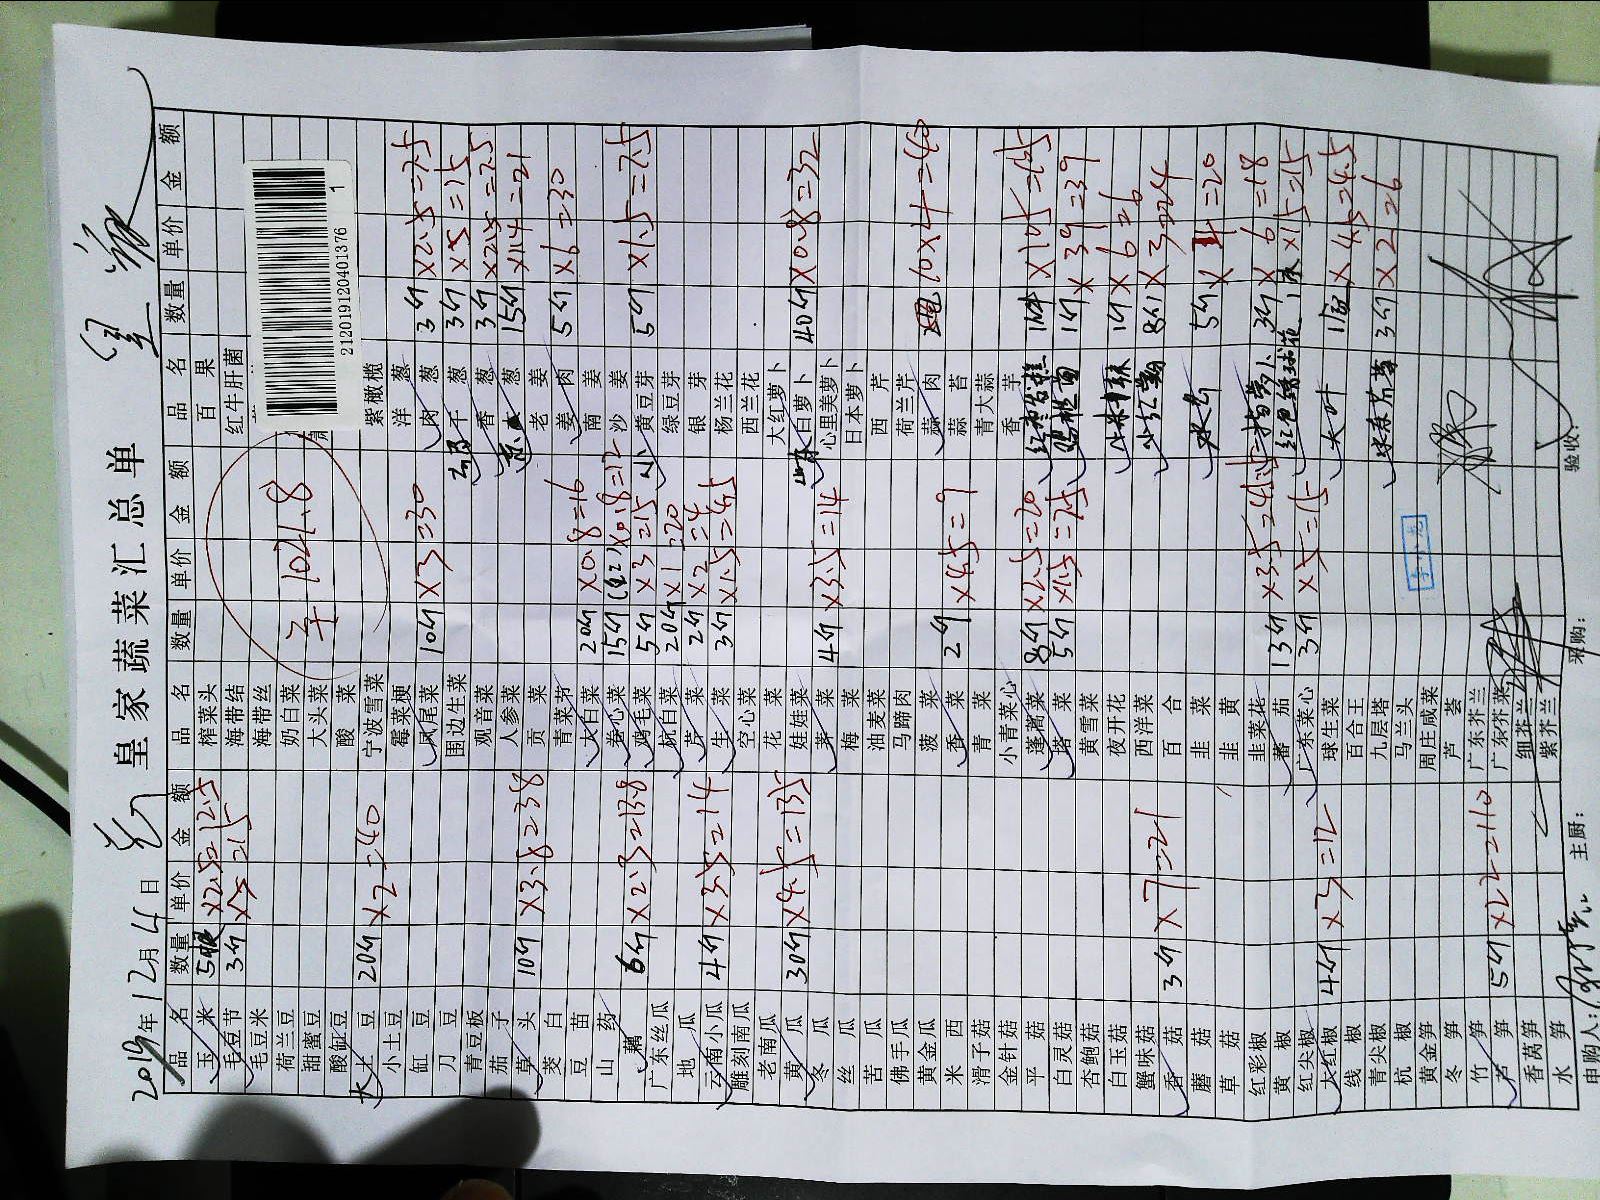 皇家蔬菜汇总单
2019年12月4日
品名 数量 单价 金额 品名 数量 单价 金额 品名 数量 单价 金额
玉米 5根 ×2.5=12.5
毛豆节 3斤 ×5=15
毛豆米
荷兰豆
甜蜜豆
酸豇豆
大土豆 20斤 ×2=40
小土豆
缸豆
刀豆
青豆板
茄子
草头 10斤 ×3.8=38
茭白
豆苗
山药
藕 6斤 ×2.3=13.8
广东丝瓜
地瓜
云南小瓜 4斤 ×3.5=14
雕刻南瓜
老南瓜
黄瓜 30斤 ×4.5=135
冬瓜
丝瓜
苦瓜
佛手瓜
黄金瓜
米西
滑子菇
金针菇
平菇
白灵菇
杏鲍菇
白玉菇
蟹味菇
香菇 3斤 ×7=21
蘑菇
草菇
红彩椒
黄椒
红尖椒
大红椒 4斤 ×3=12
线椒
青尖椒
杭椒
黄金笋
冬笋
竹笋
芦笋 5斤 ×22=110
香莴笋
水笋
榨菜头
海带结
海带丝
奶白菜
大头菜
酸菜
宁波雪菜
霉菜梗
凤尾菜 10斤 ×3=30
围边生菜
观音菜
人参菜
贡菜
青菜
大白菜 20斤 ×0.8=16
卷心菜 15斤 ×0.8=12
鸡毛菜 5斤 ×3=15
杭白菜 20斤 ×1=20
芹菜 2斤 ×2=4
生菜 3斤 ×1.5=4.5
空心菜
花菜
娃娃菜
荠菜 4斤 ×3.5=14
梅菜
油麦菜
马蹄肉
菠菜
香菜 2斤 ×4.5=9
青菜
小青菜心
蓬蒿菜 8斤 ×2.5=20
塔菜 5斤 ×1.5=7.5
黄雪菜
夜开花
西洋菜
百合
韭菜
韭黄
韭菜花
蕃茄 13斤 ×3.5=45.5
广东菜心 3斤 ×5=15
球生菜
百合王
九层塔
马兰头
周庄咸菜
芦荟
广东芥兰
广东芥菜
细芥兰
紫芥兰
1021.8
百果
红牛肝菌
2120191204013761
紫橄榄
洋葱 3斤 ×2.5=7.5
肉葱 3斤 ×5=15
干葱 3斤 ×2.5=7.5
香葱 15斤 ×1.4=21
京葱
老姜
姜肉 5斤 ×6=30
南姜
沙姜
小黄豆芽 5斤 ×1.5=7.5
绿豆芽
银芽
杨兰花
西兰花
大红萝卜
白萝卜 40斤 ×0.8=32
心里美萝卜
日本萝卜
西芹
荷兰芹
蒜肉 10×4=40
蒜苔
青大蒜
香芋
1斤 ×39=39
小米辣 1斤 ×6=6
8斤 ×3=24
5斤 × 4=20
手指萝卜 3斤 × 6=18
红色绣球花 1 ×15=15
大叶 ×4.5=4.5
3斤 ×2=6
申购人: 主厨: 采购: 验收: